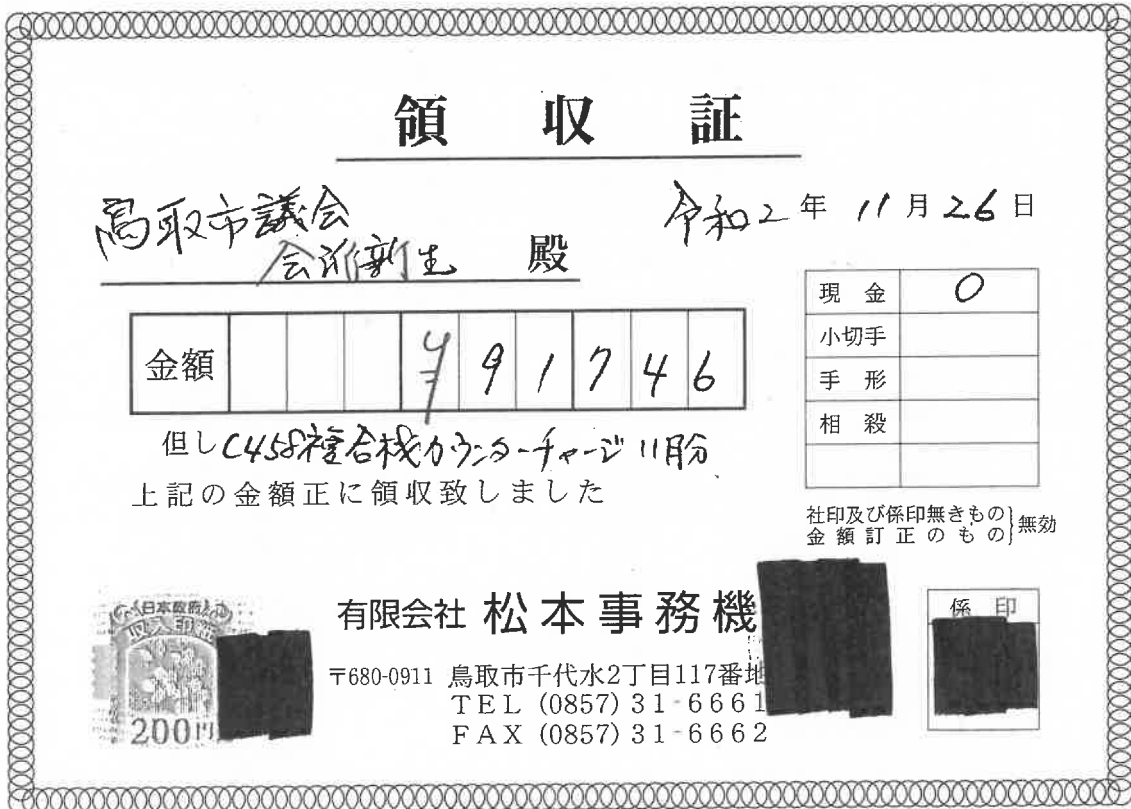 領収証
鳥取市議会
会派新生 殿
令和2年11月26日
金額 ¥91746
現金 0
小切手
手形
相殺
但し C458複合機カウンターチャージ 11月分
上記の金額正に領収致しました
社印及び係印無きもの
金額訂正のもの}無効
日本政府
収入印紙
200円
有限会社 松本事務機
〒680-0911 鳥取市千代水2丁目117番地
TEL (0857) 31-6661
FAX (0857) 31-6662
係印